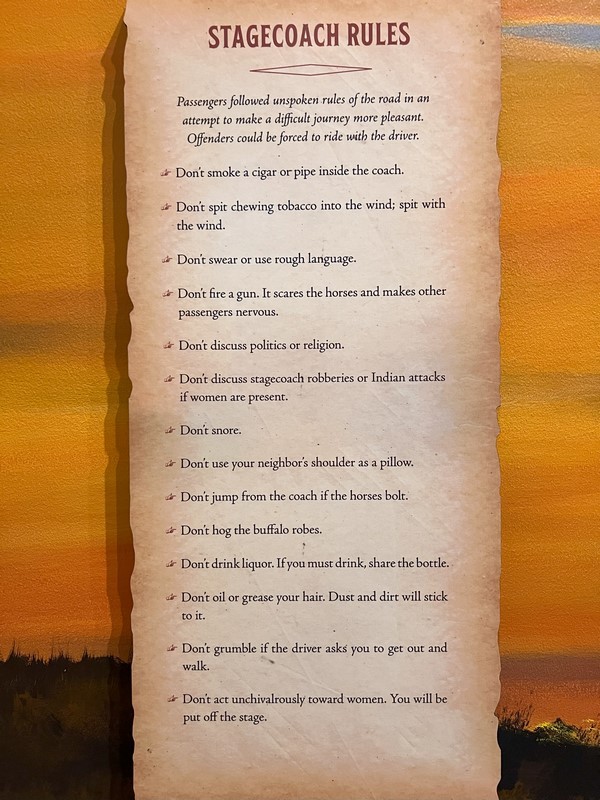 STAGECOACH RULES
Passengers followed unspoken rules of the road in an
attempt to make a difficult journey more pleasant.
Offenders could be forced to ride with the driver.
Don't smoke a cigar or pipe inside the coach.
Don't spit chewing tobacco into the wind; spit with
the wind.
Don't swear or use rough language.
Don't fire a gun. It scares the horses and makes other
passengers nervous.
Don't discuss politics or religion.
Don't discuss stagecoach robberies or Indian attacks
if women are present.
Don't snore.
Don't use your neighbor's shoulder as a pillow.
Don't jump from the coach if the horses bolt.
Don't hog the buffalo robes.
Don't drink liquor. If you must drink, share the bottle.
Don't oil or grease your hair. Dust and dirt will stick
to it.
Don't grumble if the driver asks you to get out and
walk.
Don't act unchivalrously toward women. You will be
put off the stage.